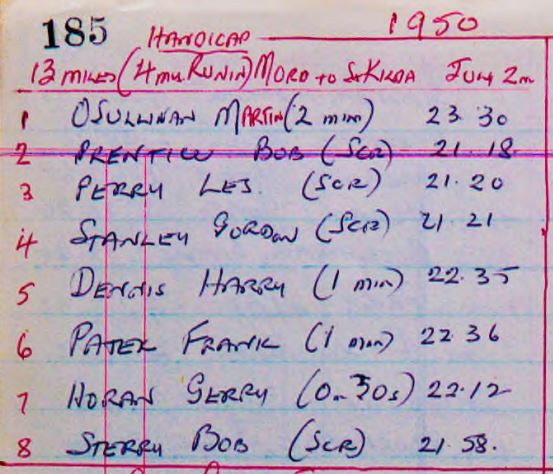 185 HANDICAP 1950
13 MILES (4 MILE RUN IN) MORD to ST KILDA JULY 2nd
1 O'SULLIVAN MARTIN (2 min) 23.30
2 PRENTICE BOB (SCR) 21.18
3 PERRY LES. (SCR) 21.20
4 STANLEY GORDON (SCR) 21.21
5 DENNIS HARRY (1 min) 22.35
6 PATEK FRANK (1 min) 22.36
7 HORAN GERRY (0m 30s) 22.12
8 STERRY BOB (SCR) 21.58.